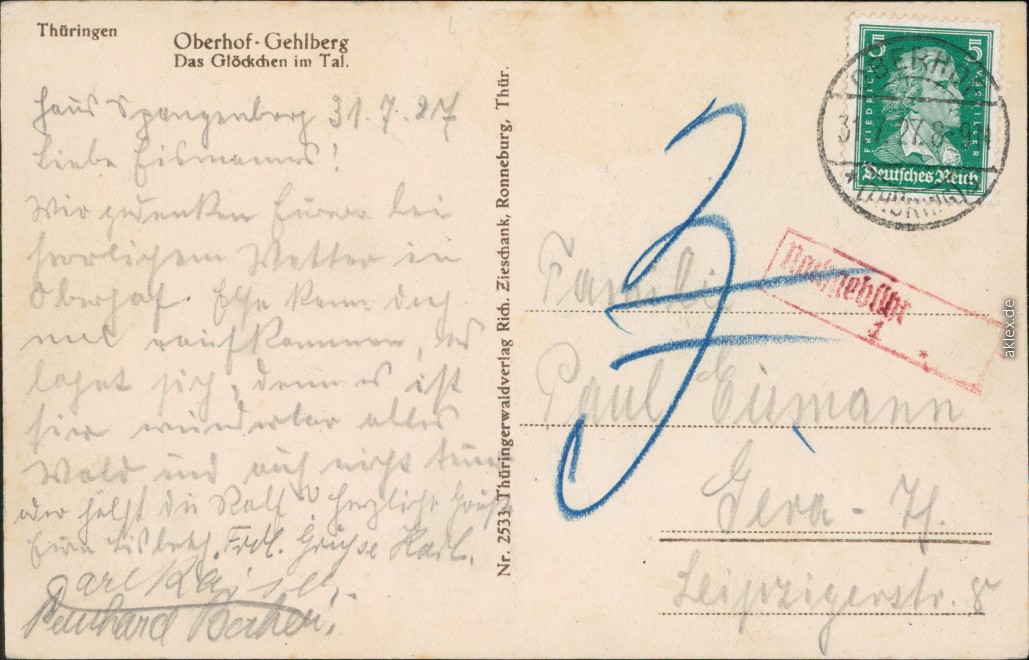 Thüringen
Oberhof-Gehlberg
Das Glöckchen im Tal.
Haus Spangenberg 31.7.27
Liebe Eismanns!
Wir gedenken Eurer bei
herrlichem Wetter in
Oberhof. Else kann doch
mal rauf kommen, es
lohnt sich, denn es ist
hier wunderbar alles
Wald und auch nicht
oder hälst du Ralf? Herzliche Grüße
Eure Lisbeth. Frdl. Grüsse Karl.
Nr. 2533 Thüringerwaldverlag Rich. Zieschank, Ronneburg, Thür.
5 5
FRIEDRICH SCHILLER
Deutsches Reich
OBERHOF
31.7.27. 8-9N
* (THÜRINGEN)
Nachgebühr
1 *
Familie
Paul Eismann
Gera - Th.
Leipzigerstr. 8
aklex.de